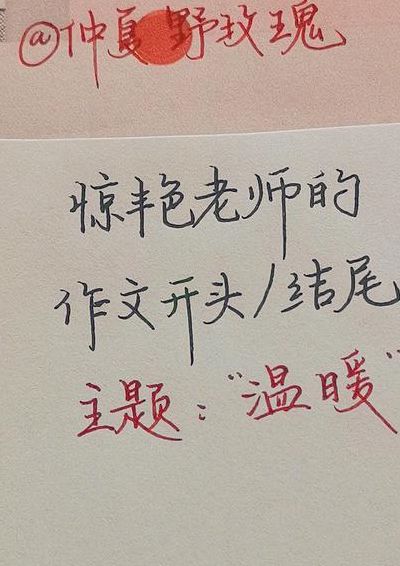 @仲夏野玫瑰
惊艳老师的
作文开头/结尾
主题：“温暖”